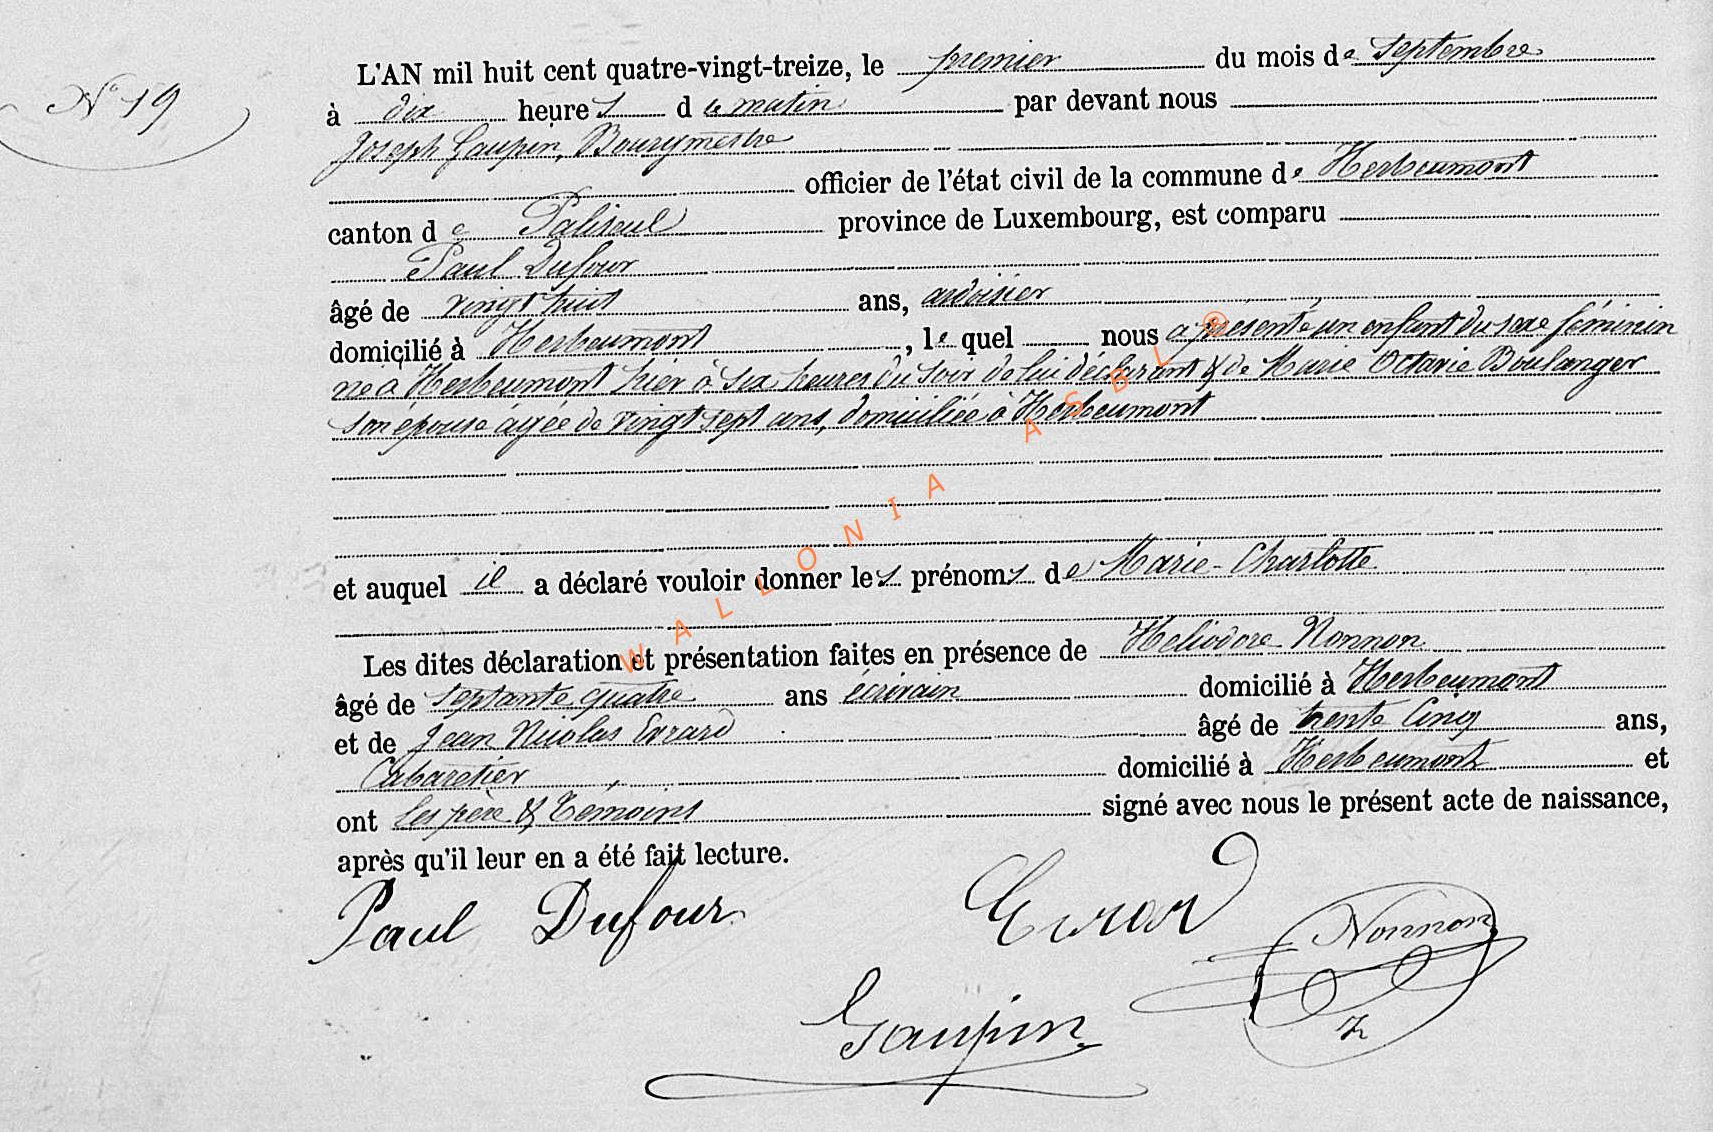 N° 19
L'AN mil huit cent quatre-vingt-treize, le premier du mois de Septembre
à dix heures du matin par devant nous
Joseph Gaupin, Bourgmestre
officier de l'état civil de la commune de Herbeumont
canton de Paliseul province de Luxembourg, est comparu
Paul Dufour
âgé de vingt huit ans, ardoisier
domicilié à Herbeumont, le quel nous a présenté un enfant du sexe féminin
né à Herbeumont hier à six heures du soir de lui déclarant & de Marie Octavie Boulanger
son épouse âgée de vingt sept ans, domiciliée à Herbeumont
et auquel il a déclaré vouloir donner les prénoms de Marie-Charlotte
Les dites déclaration et présentation faites en présence de Heliodore Nonnon
âgé de septante quatre ans écrivain domicilié à Herbeumont
et de Jean Nicolas Evrard âgé de trente cinq ans,
Cabaretier, domicilié à Herbeumont et
ont les père & témoins signé avec nous le présent acte de naissance,
après qu'il leur en a été fait lecture.
Paul Dufour Evrard Nonnon
Gaupin
WALLONIA ASBL ®